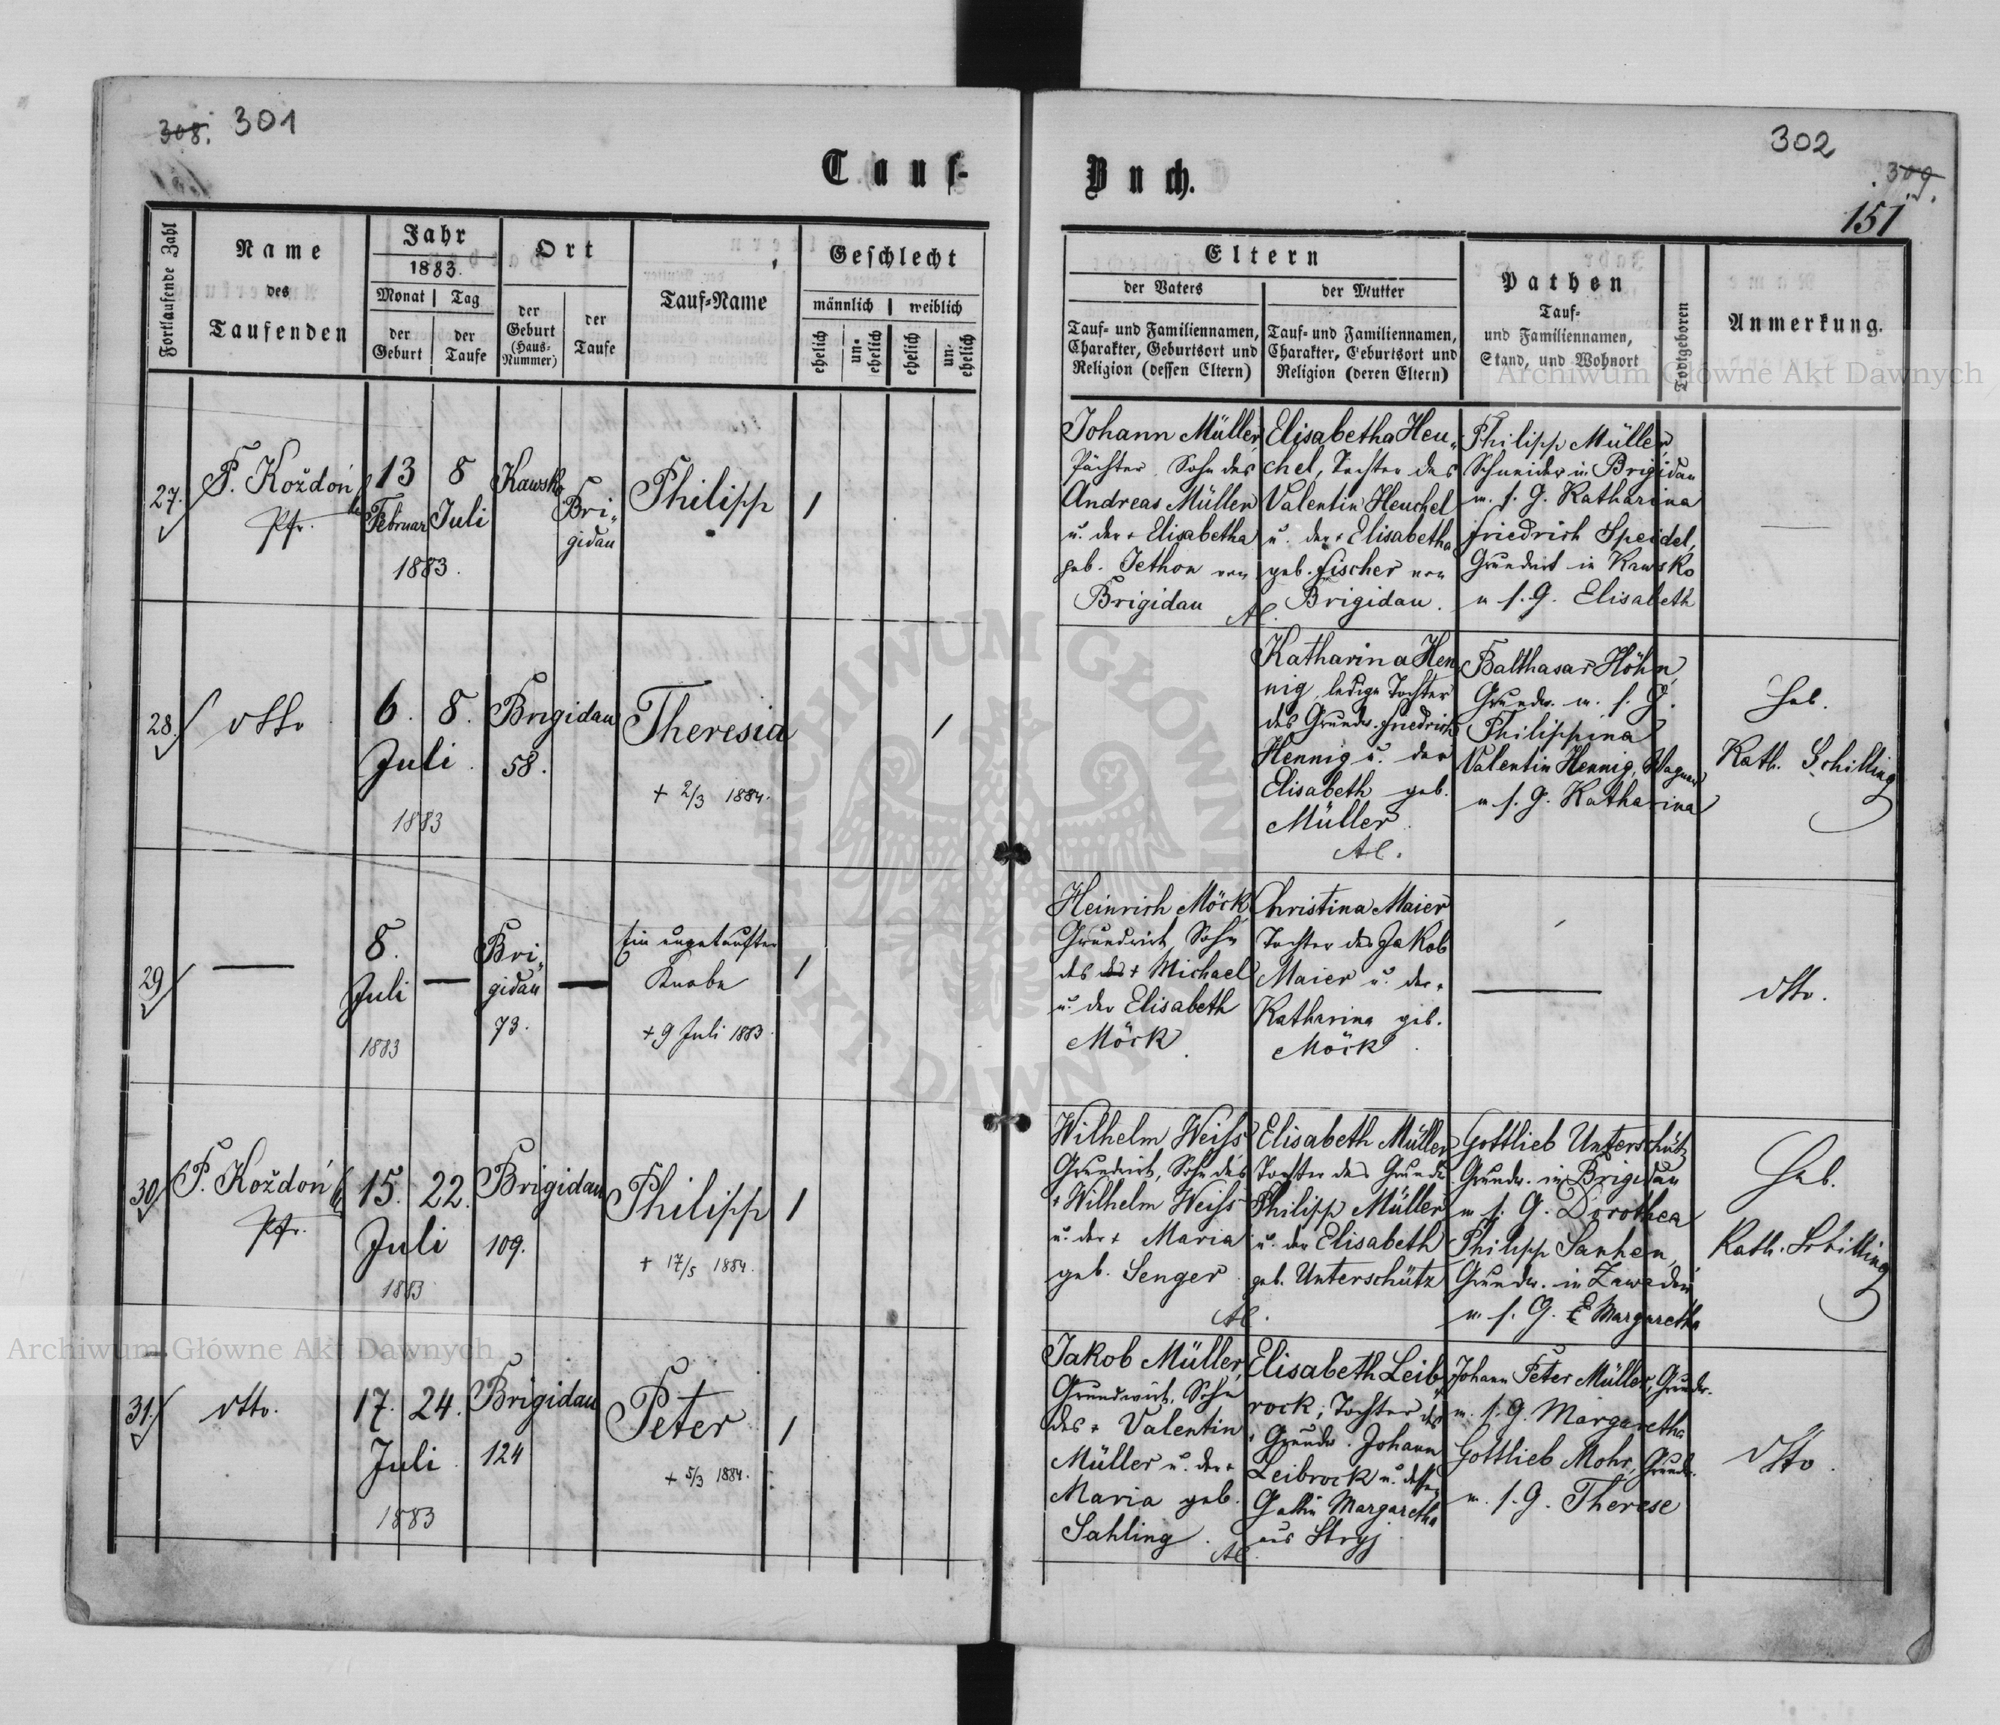 308. 301
Tauf-
Fortlaufende Zahl
Name
des
Taufenden
Jahr
1883.
Monat | Tag
der
Geburt
der
Taufe
Ort
der
Geburt
(Haus-
Nummer)
der
Taufe
Tauf-Name
Geschlecht
männlich | weiblich
ehelich
un-
ehelich
ehelich
un-
ehelich
27.
P. Koždoń
Pfr.
13
Februar
8
Juli
1883.
Kawsko
Bri-
gidau
Philipp
1
28.
dtto
6.
8.
Juli.
1883
Brigidau
58.
Theresia
+ 2/3 1884.
1
29
—
8.
Juli
1883
—
Bri-
gidau
73.
—
Ein ungetaufter
Knabe
+ 9 Juli 1883.
1
30
P. Koždoń
Pfr.
15.
22.
Juli
1883
Brigidau
109.
Philipp
+ 17/5 1884.
1
31.
dtto.
17.
24.
Juli.
1883
Brigidau
124
Peter
+ 5/3 1884.
1
302
309.
151
Buch.
Eltern
der Vaters
der Mutter
Tauf- und Familiennamen,
Charakter, Geburtsort und
Religion (dessen Eltern)
Tauf- und Familiennamen,
Charakter, Geburtsort und
Religion (deren Eltern)
Pathen
Tauf-
und Familiennamen,
Stand, und Wohnort
Todtgeboren
Anmerkung.
Johann Müller,
Pächter, Sohn des
Andreas Müller
u. der + Elisabetha
geb. Jethon von
Brigidau
Al.
Elisabetha Heu-
chel, Tochter des
Valentin Heuchel
u. der + Elisabetha
geb. Fischer von
Brigidau.
Philipp Müller,
Schneider in Brigidau
u. s. G. Katharina
Friedrich Speidel,
Grundwirt in Kawsko
u s. G. Elisabeth
—
Katharina Hen-
nig, ledige Tochter
des Grundw. Friedrich
Hennig u. der
Elisabeth geb.
Müller.
Al.
Balthasar Höhn,
Grundw. u. s. G.
Philippina
Valentin Hennig, Wagner
u s. G. Katharina
Heb.
Kath. Schilling
Heinrich Möck,
Grundwirt, Sohn
des des + Michael
u. der Elisabeth
Möck.
Christina Maier
Tochter des Jakob
Maier u. der +
Katharina geb.
Möck.
—
dtto.
Wilhelm Weiss
Grundwirt, Sohn des
+ Wilhelm Weiss
u. der + Maria
geb. Senger
Al.
Elisabeth Müller
Tochter des Grundw.
Philipp Müller
u. der Elisabeth
geb. Unterschütz
Gottlieb Unterschütz
Grundw. in Brigidau
u s. G. Dorothea
Philipp Manhen,
Grundw. in Zawadów,
u. s. G. E Margaretha
Heb.
Kath. Schilling
Jakob Müller,
Grundwirt, Sohn
des + Valentin
Müller u. der +
Maria geb.
Sahling.
Al.
Elisabeth Leib-
rock, Tochter des
+ Grundw. Johann
Leibrock u. dessen
Gattin Margaretha
aus Stryj
Johann Peter Müller, Grundw.
u. s. G. Margaretha
Gottlieb Mohr, Grundw.
u. s. G. Therese
dtto.
Archiwum Główne Akt Dawnych
Archiwum Główne Akt Dawnych
ARCHIWUM GŁÓWNE AKT DAWNYCH